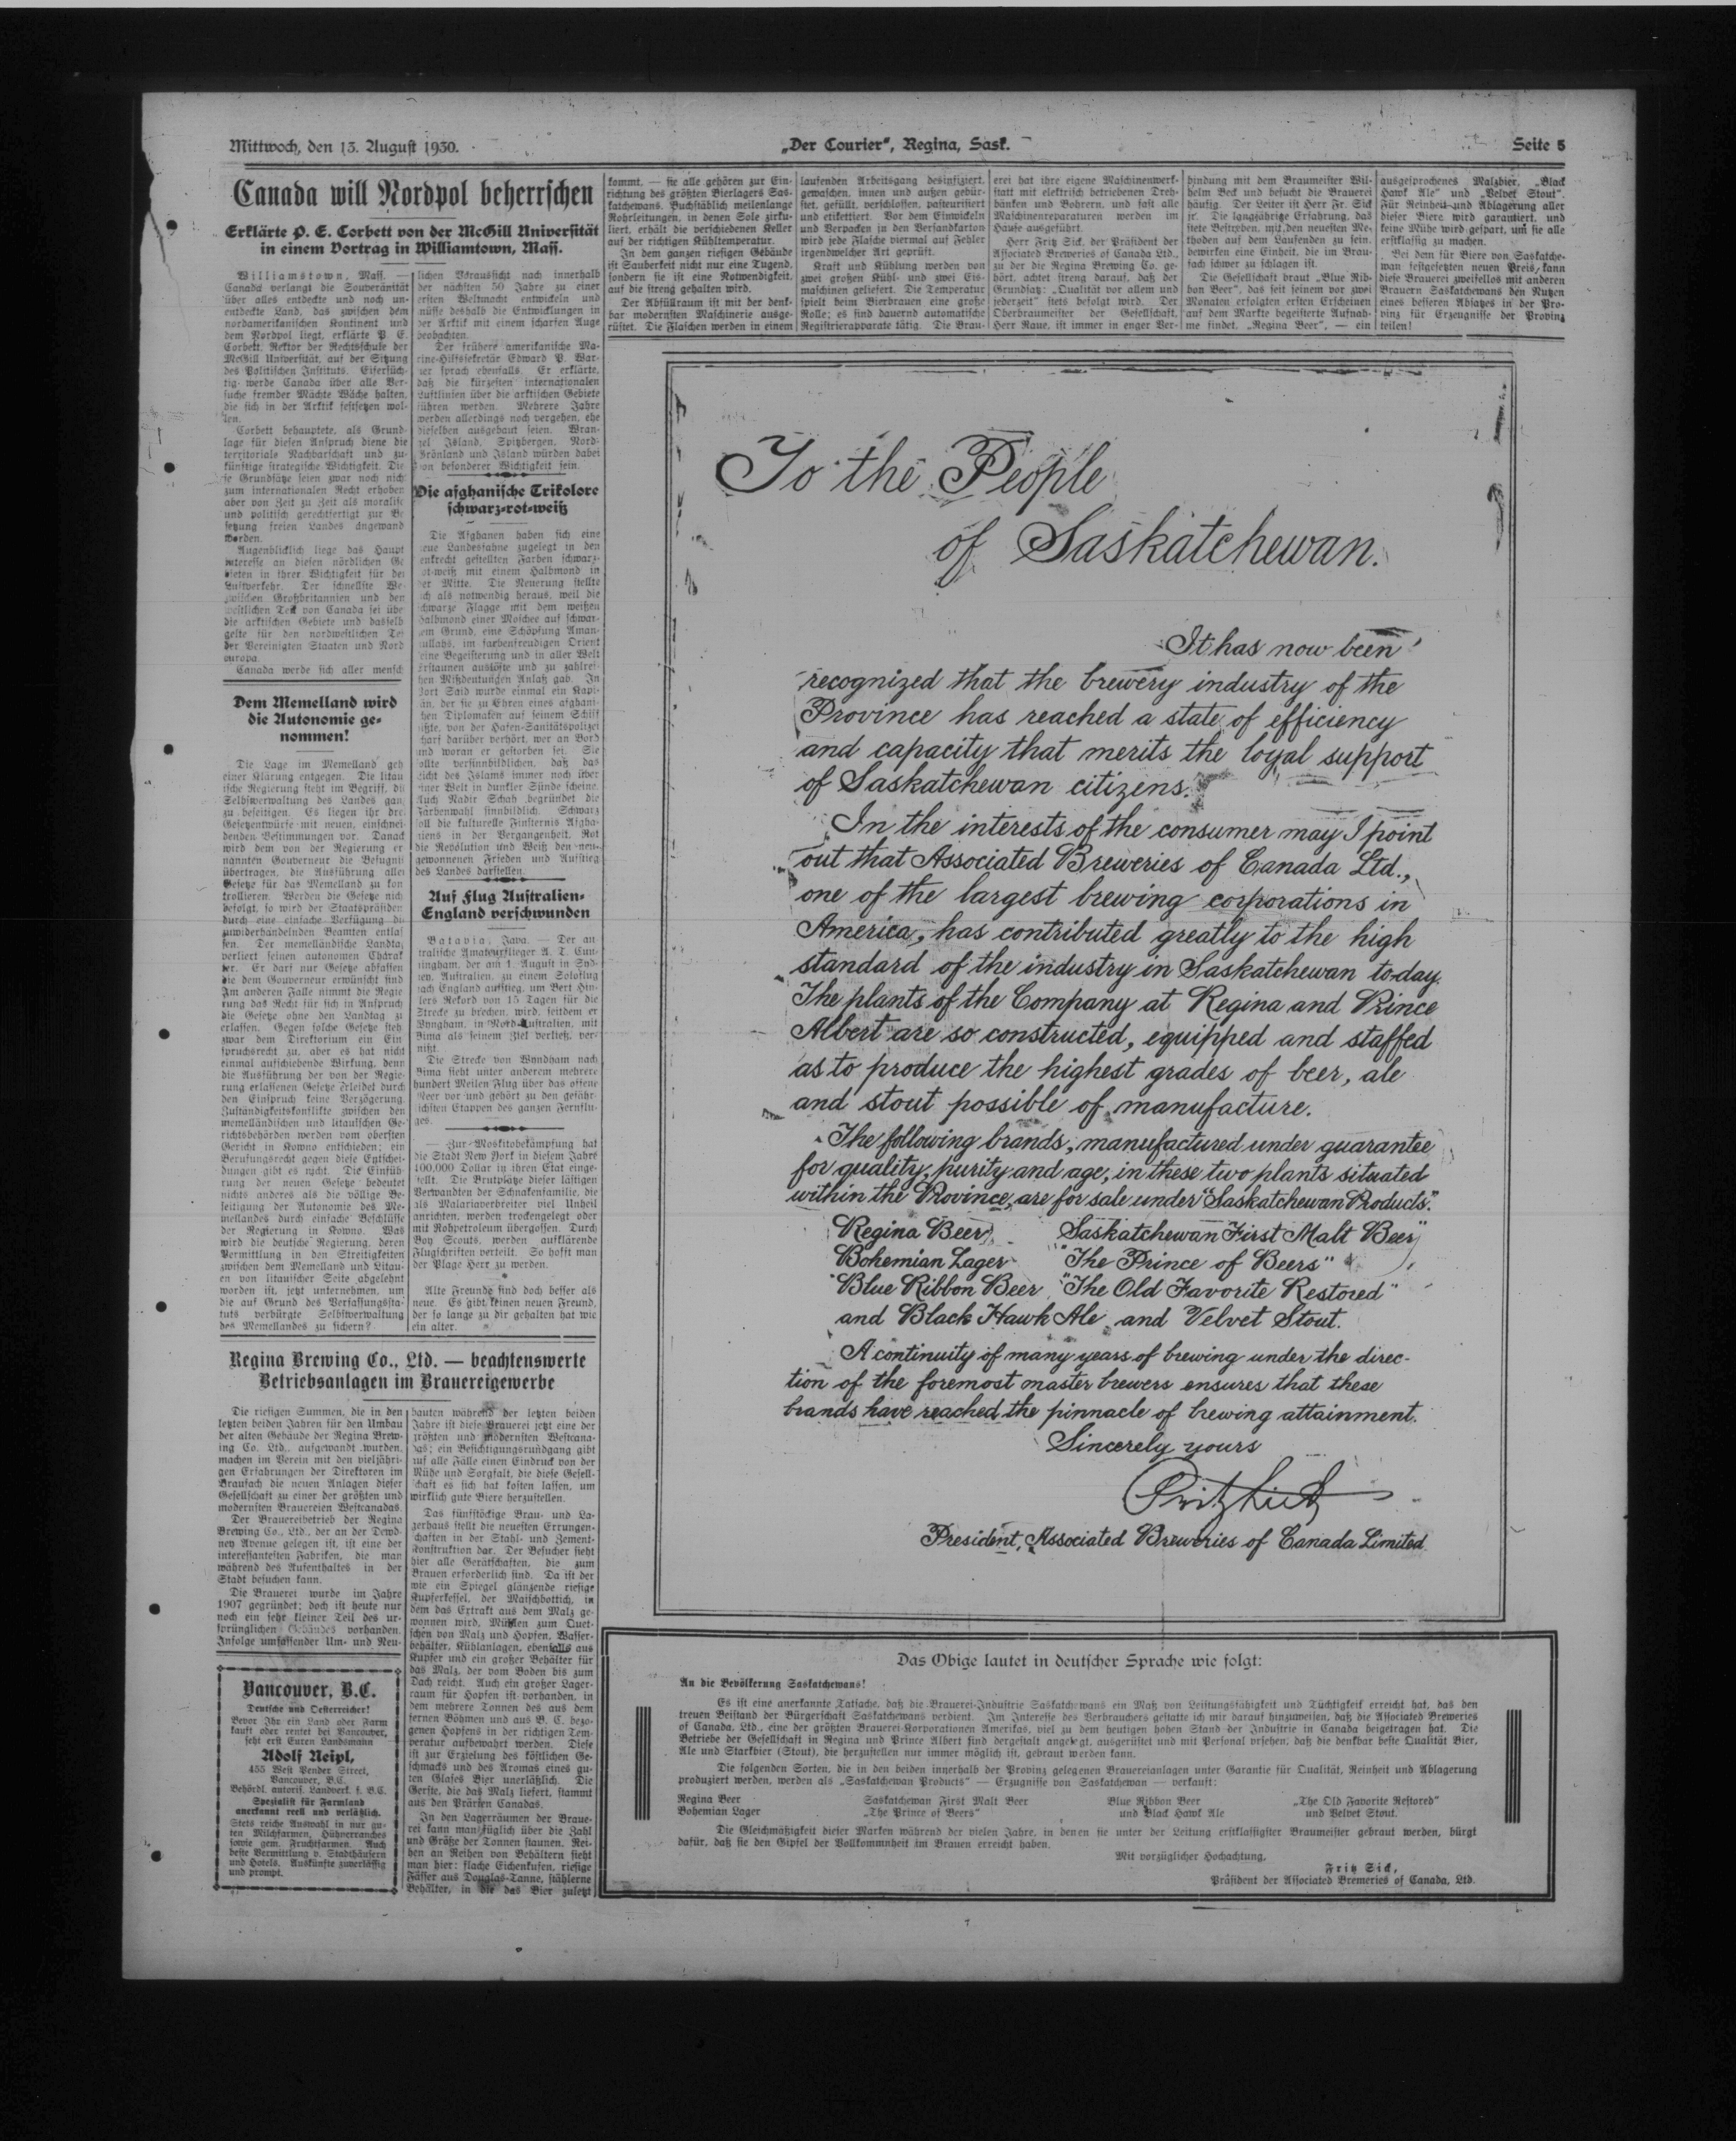 Mittwoch, den 13. August 1930.
„Der Courier“, Regina, Sask.
Seite 5
Canada will Nordpol beherrschen
Erklärte P. E. Corbett von der McGill Universität
in einem Vortrag in Williamtown, Mass.
Williamstown, Mass. —
Canada verlangt die Souveränität
über alles entdeckte und noch un-
entdeckte Land, das zwischen dem
nordamerikanischen Kontinent und
dem Nordpol liegt, erklärte P. E.
Corbett, Rektor der Rechtsschule der
McGill Universität, auf der Sitzung
des Politischen Instituts. Eifersüch-
tig werde Canada über alle Ver-
suche fremder Mächte Wache halten,
die sich in der Arktik festsetzen wol-
len.
Corbett behauptete, als Grund-
lage für diesen Anspruch diene die
territoriale Nachbarschaft und zu-
künftige strategische Wichtigkeit. Die
se Grundsätze seien zwar noch nich
zum internationalen Recht erhoben
aber von Zeit zu Zeit als moralisc
und politisch gerechtfertigt zur Be
setzung freien Landes angewand
worden.
Augenblicklich liege das Haupt
interesse an diesen nördlichen Ge
bieten in ihrer Wichtigkeit für den
Luftverkehr. Der schnellste We
zwischen Großbritannien und den
westlichen Teil von Canada sei übe
die arktischen Gebiete und dasselb
gelte für den nordwestlichen Tei
der Vereinigten Staaten und Nord
europa.
Canada werde sich aller mensch
lichen Voraussicht nach innerhalb
der nächsten 50 Jahre zu einer
ersten Weltmacht entwickeln und
müsse deshalb die Entwicklungen in
der Arktik mit einem scharfen Auge
beobachten.
Der frühere amerikanische Ma-
rine-Hilfssekretär Edward P. War-
ner sprach ebenfalls. Er erklärte,
daß die kürzesten internationalen
Luftlinien über die arktischen Gebiete
führen werden. Mehrere Jahre
werden allerdings noch vergehen, ehe
dieselben ausgebaut seien. Wran-
gel Island, Spitzbergen, Nord-
Grönland und Island würden dabei
von besonderer Wichtigkeit sein.
Die afghanische Trikolore
schwarz-rot-weiß
Die Afghanen haben sich eine
neue Landesfahne zugelegt in den
senkrecht gestellten Farben schwarz-
rot-weiß mit einem Halbmond in
der Mitte. Die Neuerung stellte
sich als notwendig heraus, weil die
schwarze Flagge mit dem weißen
Halbmond einer Moschee auf schwar-
zem Grund, eine Schöpfung Aman-
ullahs, im farbenfreudigen Orient
keine Begeisterung und in aller Welt
Erstaunen auslöste und zu zahlrei-
chen Mißdeutungen Anlaß gab. In
Port Said wurde einmal ein Kapi-
tän, der sie zu Ehren eines afghani-
schen Diplomaten auf seinem Schiff
hißte, von der Hafen-Sanitätspolizei
scharf darüber verhört, wer an Bord
und woran er gestorben sei. Sie
sollte versinnbildlichen, daß das
Licht des Islams immer noch über
einer Welt in dunkler Sünde scheine.
Auch Nadir Schah begründet die
Farbenwahl sinnbildlich. Schwarz
soll die kulturelle Finsternis Afgha-
niens in der Vergangenheit, Rot
die Revolution und Weiß den neu-
gewonnenen Frieden und Aufstieg
des Landes darstellen.
Auf Flug Australien-
England verschwunden
Batavia, Java. — Der au
stralische Amateurflieger A. T. Cun-
ningham, der am 1. August in Syd-
ney, Australien, zu einem Soloflug
nach England aufstieg, um Bert Hin-
lers Rekord von 15 Tagen für die
Strecke zu brechen, wird, seitdem er
Wyngham, in Nord-Australien, mit
Bima als seinem Ziel verließ, ver-
mißt.
Die Strecke von Wyndham nach
Bima sieht unter anderem mehrere
hundert Meilen Flug über das offene
Meer vor und gehört zu den gefähr-
lichsten Etappen des ganzen Fernflu-
ges.
— Zur Moskitobekämpfung hat
die Stadt New York in diesem Jahre
400,000 Dollar in ihren Etat einge-
stellt. Die Brutplätze dieser lästigen
Verwandten der Schnakenfamilie, die
als Malariaverbreiter viel Unheil
anrichten, werden trockengelegt oder
mit Rohpetroleum übergossen. Durch
Boy Scouts, werden aufklärende
Flugschriften verteilt. So hofft man
der Plage Herr zu werden.
Alte Freunde sind doch besser als
neue. Es gibt keinen neuen Freund,
der so lange zu dir gehalten hat wie
ein alter.
Dem Memelland wird
die Autonomie ge-
nommen!
Die Lage im Memelland geh
einer Klärung entgegen. Die litau
ische Regierung steht im Begriff, di
Selbstverwaltung des Landes gan
zu beseitigen. Es liegen ihr dre
Gesetzentwürfe mit neuen, einschnei-
denden Bestimmungen vor. Danach
wird dem von der Regierung er
nannten Gouverneur die Befugnis
übertragen, die Ausführung aller
Gesetze für das Memelland zu kon
trollieren. Werden die Gesetze nich
befolgt, so wird der Staatspräsiden
durch eine einfache Verfügung di
zuwiderhandelnden Beamten entlas
sen. Der memelländische Landtag
verliert seinen autonomen Charak
ter. Er darf nur Gesetze abfassen
die dem Gouverneur erwünscht sind
Im anderen Falle nimmt die Regie
rung das Recht für sich in Anspruch
die Gesetze ohne den Landtag z
erlassen. Gegen solche Gesetze steh
zwar dem Direktorium ein Ein
spruchsrecht zu, aber es hat nicht
einmal aufschiebende Wirkung, denn
die Ausführung der von der Regie-
rung erlassenen Gesetze erleidet durch
den Einspruch keine Verzögerung.
Zuständigkeitskonflikte zwischen den
memelländischen und litauischen Ge-
richtsbehörden werden vom obersten
Gericht in Kowno entschieden; ein
Berufungsrecht gegen diese Entschei-
dungen gibt es nicht. Die Einfüh-
rung der neuen Gesetze bedeutet
nichts anderes als die völlige Be-
seitigung der Autonomie des Me-
mellandes durch einfache Beschlüsse
der Regierung in Kowno. Was
wird die deutsche Regierung, deren
Vermittlung in den Streitigkeiten
zwischen dem Memelland und Litau-
en von litauischer Seite abgelehnt
worden ist, jetzt unternehmen, um
die auf Grund des Verfassungssta-
tuts verbürgte Selbstverwaltung
des Memellandes zu sichern?
Regina Brewing Co., Ltd. — beachtenswerte
Betriebsanlagen im Brauereigewerbe
Die riesigen Summen, die in den
letzten beiden Jahren für den Umbau
der alten Gebäude der Regina Brew-
ing Co. Ltd., aufgewandt wurden,
machen im Verein mit den vieljähri-
gen Erfahrungen der Direktoren im
Braufach die neuen Anlagen dieser
Gesellschaft zu einer der größten und
modernsten Brauereien Westcanadas.
Der Brauereibetrieb der Regina
Brewing Co., Ltd., der an der Dewd-
ney Avenue gelegen ist, ist eine der
interessantesten Fabriken, die man
während des Aufenthaltes in der
Stadt besuchen kann.
Die Brauerei wurde im Jahre
1907 gegründet; doch ist heute nur
noch ein sehr kleiner Teil des ur-
sprünglichen Gebäudes vorhanden.
Infolge umfassender Um- und Neu-
bauten während der letzten beiden
Jahre ist diese Brauerei jetzt eine der
größten und modernsten Westcana-
das; ein Besichtigungsrundgang gibt
auf alle Fälle einen Eindruck von der
Mühe und Sorgfalt, die diese Gesell-
schaft es sich hat kosten lassen, um
wirklich gute Biere herzustellen.
Das fünfstöckige Brau- und La-
gerhaus stellt die neuesten Errungen-
schaften in der Stahl- und Zement-
Konstruktion dar. Der Besucher sieht
hier alle Gerätschaften, die zum
Brauen erforderlich sind. Da ist der
wie ein Spiegel glänzende riesige
Kupferkessel, der Maischbottich, in
dem das Extrakt aus dem Malz ge-
wonnen wird, Mühlen zum Quet-
schen von Malz und Hopfen, Wasser-
behälter, Kühlanlagen, ebenfalls aus
Kupfer und ein großer Behälter für
das Malz, der vom Boden bis zum
Dach reicht. Auch ein großer Lager-
raum für Hopfen ist vorhanden, in
dem mehrere Tonnen des aus dem
fernen Böhmen und aus B. C. bezo-
genen Hopfens in der richtigen Tem-
peratur aufbewahrt werden. Diese
ist zur Erzielung des köstlichen Ge-
schmacks und des Aromas eines gu-
ten Glases Bier unerläßlich. Die
Gerste, die das Malz liefert, stammt
aus den Prärien Canadas.
In den Lagerräumen der Braue-
rei kann man füglich über die Zahl
und Größe der Tonnen staunen. Rei-
hen an Reihen von Behältern sieht
man hier: flache Eichenkufen, riesige
Fässer aus Douglas-Tanne, stählerne
Behälter, in die das Bier zuletzt
kommt, — sie alle gehören zur Ein-
richtung des größten Bierlagers Sas-
katchewans. Buchstäblich meilenlange
Rohrleitungen, in denen Sole zirku-
liert, erhält die verschiedenen Keller
auf der richtigen Kühltemperatur.
In dem ganzen riesigen Gebäude
ist Sauberkeit nicht nur eine Tugend,
sondern sie ist eine Notwendigkeit,
auf die streng gehalten wird.
Der Abfüllraum ist mit der denk-
bar modernsten Maschinerie ausge-
rüstet. Die Flaschen werden in einem
laufenden Arbeitsgang desinfiziert,
gewaschen, innen und außen gebür-
stet, gefüllt, verschlossen, pasteurisiert
und etikettiert. Vor dem Einwickeln
und Verpacken in den Versandkarton
wird jede Flasche viermal auf Fehler
irgendwelcher Art geprüft.
Kraft und Kühlung werden von
zwei großen Kühl- und zwei Eis-
maschinen geliefert. Die Temperatur
spielt beim Bierbrauen eine große
Rolle; es sind dauernd automatische
Registrierapparate tätig. Die Brau-
erei hat ihre eigene Maschinenwerk-
statt mit elektrisch betriebenen Dreh-
bänken und Bohrern, und fast alle
Maschinenreparaturen werden im
Hause ausgeführt.
Herr Fritz Sick, der Präsident der
Associated Breweries of Canada Ltd.,
zu der die Regina Brewing Co. ge-
hört, achtet streng darauf, daß der
Grundsatz: „Qualität vor allem und
jederzeit“ stets befolgt wird. Der
Oberbraumeister der Gesellschaft,
Herr Raue, ist immer in enger Ver-
bindung mit dem Braumeister Wil-
helm Beck und besucht die Brauerei
häufig. Der Leiter ist Herr Fr. Sick
jr. Die langjährige Erfahrung, das
stete Bestreben, mit den neuesten Me-
thoden auf dem Laufenden zu sein,
bewirken eine Einheit, die im Brau-
fach schwer zu schlagen ist.
Die Gesellschaft braut „Blue Rib-
bon Beer“, das seit seinem vor zwei
Monaten erfolgten ersten Erscheinen
auf dem Markte begeisterte Aufnah-
me findet, „Regina Beer“, — ein
ausgesprochenes Malzbier, „Black
Hawk Ale“ und „Velvet Stout“.
Für Reinheit und Ablagerung aller
dieser Biere wird garantiert, und
keine Mühe wird gespart, um sie alle
erstklassig zu machen.
Bei dem für Biere von Saskatche-
wan festgesetzten neuen Preis kann
diese Brauerei zweifellos mit anderen
Brauern Saskatchewans den Nutzen
eines besseren Absatzes in der Pro-
vinz für Erzeugnisse der Provinz
teilen!
Vancouver, B.C.
Deutsche und Oesterreicher!
Bevor Ihr ein Land oder Farm
kauft oder rentet bei Vancouver,
seht erst Euren Landsmann
Adolf Neipl,
455 West Pender Street,
Vancouver, B.C.
Behördl. autoris. Landverk. f. B.C.
Spezialist für Farmland
anerkannt reell und verläßlich.
Stets reiche Auswahl in nur gu-
ten Milchfarmen, Hühnerranches
sowie gem. Fruchtfarmen. Auch
beste Vermittlung v. Stadthäusern
und Hotels. Auskünfte zuverlässig
und prompt.
To the People
of Saskatchewan.
It has now been
recognized that the brewery industry of the
Province has reached a state of efficiency
and capacity that merits the loyal support
of Saskatchewan citizens.
In the interests of the consumer may I point
out that Associated Breweries of Canada Ltd.,
one of the largest brewing corporations in
America, has contributed greatly to the high
standard of the industry in Saskatchewan to-day.
The plants of the Company at Regina and Prince
Albert are so constructed, equipped and staffed
as to produce the highest grades of beer, ale
and stout possible of manufacture.
The following brands, manufactured under guarantee
for quality, purity and age, in these two plants situated
within the Province, are for sale under "Saskatchewan Products".
Regina Beer Saskatchewan First Malt Beer
Bohemian Lager "The Prince of Beers"
Blue Ribbon Beer "The Old Favorite Restored"
and Black Hawk Ale and Velvet Stout.
A continuity of many years of brewing under the direc-
tion of the foremost master brewers ensures that these
brands have reached the pinnacle of brewing attainment.
Sincerely yours
Fritz Sick
President, Associated Breweries of Canada Limited
Das Obige lautet in deutscher Sprache wie folgt:
An die Bevölkerung Saskatchewans!
Es ist eine anerkannte Tatsache, daß die Brauerei-Industrie Saskatchewans ein Maß von Leistungsfähigkeit und Tüchtigkeit erreicht hat, das den
treuen Beistand der Bürgerschaft Saskatchewans verdient. Im Interesse des Verbrauchers gestatte ich mir darauf hinzuweisen, daß die Associated Breweries
of Canada, Ltd., eine der größten Brauerei-Korporationen Amerikas, viel zu dem heutigen hohen Stand der Industrie in Canada beigetragen hat. Die
Betriebe der Gesellschaft in Regina und Prince Albert sind dergestalt angelegt, ausgerüstet und mit Personal vrsehen, daß die denkbar beste Qualität Bier,
Ale und Starkbier (Stout), die herzustellen nur immer möglich ist, gebraut werden kann.
Die folgenden Sorten, die in den beiden innerhalb der Provinz gelegenen Brauereianlagen unter Garantie für Qualität, Reinheit und Ablagerung
produziert werden, werden als „Saskatchewan Products“ — Erzeugnisse von Saskatchewan — verkauft:
Regina Beer Saskatchewan First Malt Beer Blue Ribbon Beer „The Old Favorite Restored“
Bohemian Lager „The Prince of Beers“ und Black Hawk Ale und Velvet Stout.
Die Gleichmäßigkeit dieser Marken während der vielen Jahre, in denen sie unter der Leitung erstklassigster Braumeister gebraut werden, bürgt
dafür, daß sie den Gipfel der Vollkommnheit im Brauen erreicht haben.
Mit vorzüglicher Hochachtung,
Fritz Sick,
Präsident der Associated Bremeries of Canada, Ltd.